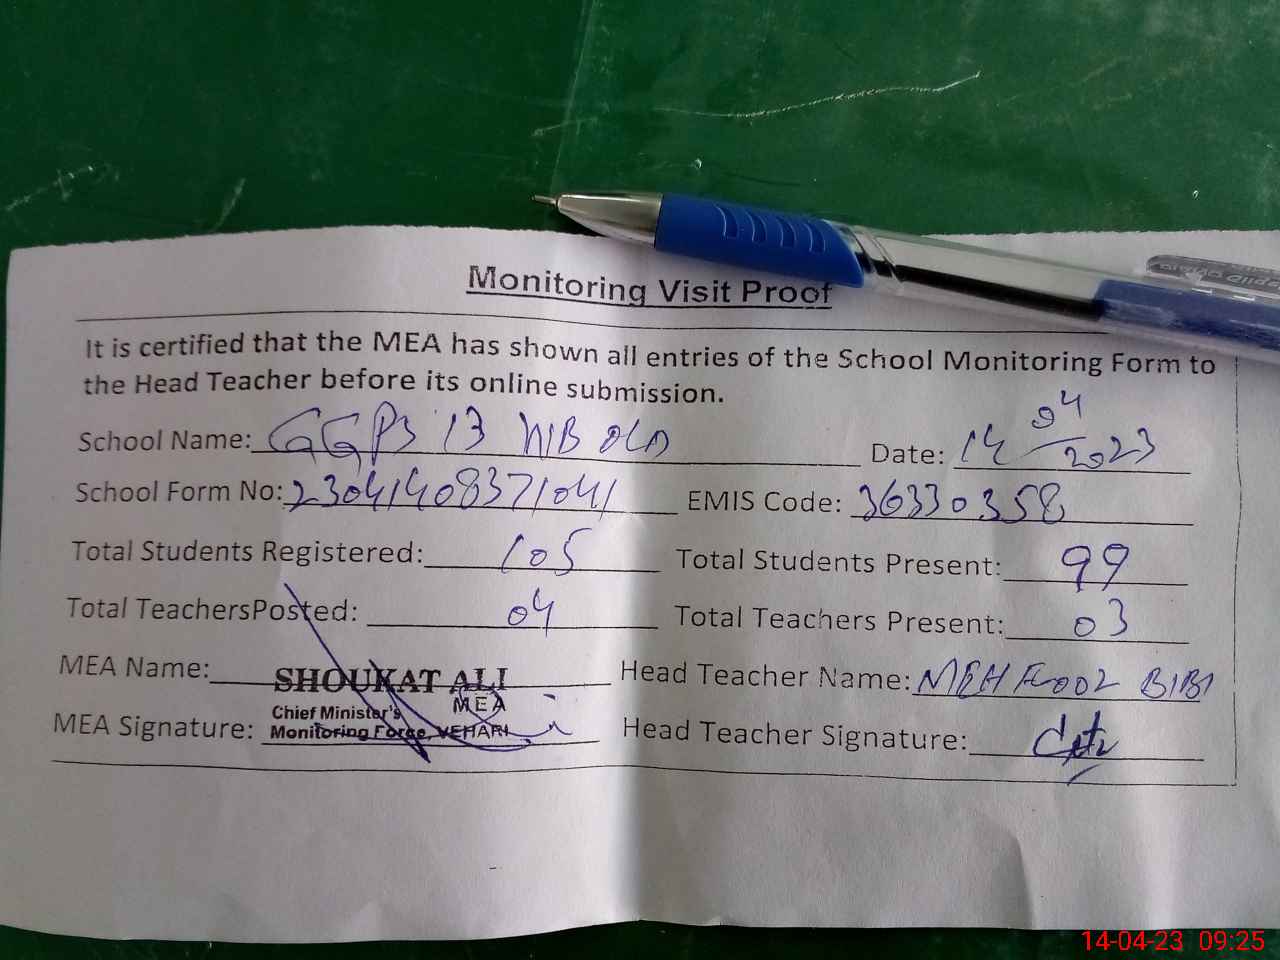 Monitoring Visit Proof
It is certified that the MEA has shown all entries of the School Monitoring Form to
the Head Teacher before its online submission.
School Name: GGPS 13 WB OLD Date: 14/04/2023
School Form No: 23041408371041 EMIS Code: 36330358
Total Students Registered: 105 Total Students Present: 99
Total TeachersPosted: 04 Total Teachers Present: 03
MEA Name: SHOUKAT ALI Head Teacher Name: MEH BIBI
MEA
Chief Minister's
MEA Signature: Monitoring Force, VEHARI Head Teacher Signature:
14-04-23 09:25